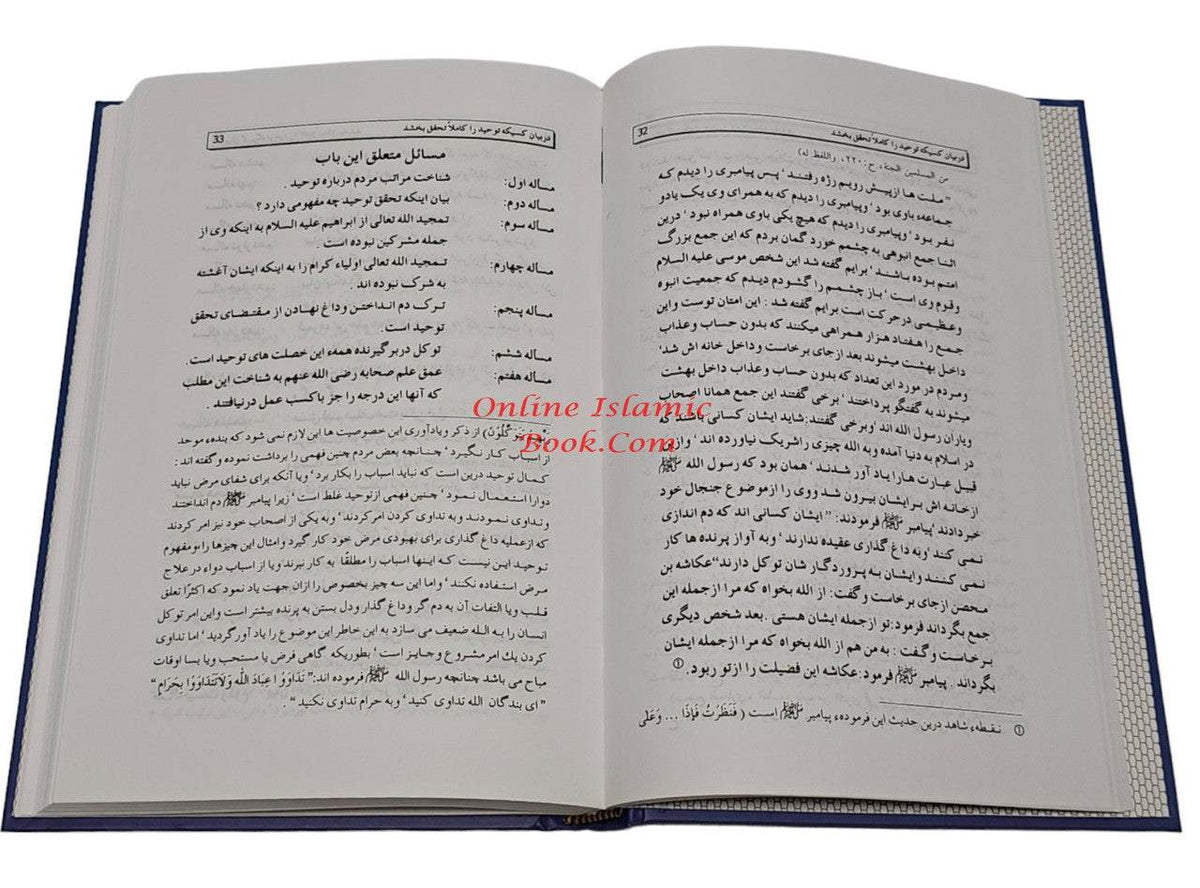 32
دربیان کسیکه توحید را کاملاً تحقق بخشد
من السلمین الجنة، ح:۲۲۰، واللفظ له)
"ملت ها از پیش رویم رژه رفتند ' پس پیامبری را دیدم که
جماعهء باوی بود ' وپیامبری را دیدم که به همرای وی یک یادو
نفر بود ' وپیامبری را دیدم که هیچ یکی باوی همراه نبود ' درین
اثنا جمع انبوهی به چشمم خورد گمان بردم که این جمع بزرگ
امتم بوده باشند ' برایم گفته شد این شخص موسی علیه السلام
وقوم وی است ' باز چشمم را گشودم دیدم که جمعیت انبوه
وعظیمی درحرکت است برایم گفته شد : این امتان توست و این
جمع را هفتاد هزار همراهی میکنند که بدون حساب وعذاب
داخل بهشت میشوند بعد ازجای برخاست وداخل خانه اش شد'
ومردم در مورد این تعداد که بدون حساب وعذاب داخل بهشت
میشوند به گفتگو پرداختند ' برخی گفتند این جمع همانا اصحاب
ویاران رسول الله اند ' وبرخی گفتند: شاید ایشان کسانی باشند که
در اسلام به دنیا آمده وبه الله چیزی را شریک نیاورده اند ' و ازین
قبیل عبارت ها را یاد آور شدند ' همان بود که رسول الله ﷺ
ازخانه اش برایشان بیرون شد ووی را ازموضوع جنجال خود
خبر دادند 'پیامبر ﷺ فرمودند: "ایشان کسانی اند که دم اندازی
نمی کنند 'وبه داغ گذاری عقیده ندارند ' وبه آواز پرنده ها کار
نمی کنند و ایشان به پروردگار شان توکل دارند"عکاشه بن
محصن ازجای برخاست و گفت: از الله بخواه که مرا ازجمله این
جمع بگرداند فرمود: تو ازجمله ایشان هستی . بعد شخص دیگری
برخاست و گفت : به من هم از الله بخواه که مرا ازجمله ایشان
بگرداند . پیامبر ﷺ فرمود: عکاشه این فضیلت را ازتو ربود. ①
① نقطهء شاهد درین حدیث این فرمودهء پیامبر ﷺ است ( فَنَظَرْتُ فَإِذَا ... وَعَلَى
دربیان کسیکه توحید را کاملاً تحقق بخشد
33
مسائل متعلق این باب
مساله اول: شناخت مراتب مردم درباره توحید .
مساله دوم: بیان اینکه تحقق توحید چه مفهومی دارد ؟
مساله سوم: تمجید الله تعالی از ابراهیم علیه السلام به اینکه وی از
جمله مشرکین نبوده است .
مساله چهارم: تمجید الله تعالی اولیاء کرام را به اینکه ایشان آغشته
به شرک نبوده اند .
مساله پنجم: ترک دم انداختن و داغ نهادن از مقتضای تحقق
توحید است .
مساله ششم: توکل دربر گیرنده همهء این خصلت های توحید است.
مساله هفتم: عمق علم صحابه رضی الله عنهم به شناخت این مطلب
که آنها این درجه را جز با کسب عمل درنیافتند .
Online Islamic
Book.Com
يَتَوَكَّلُوْنَ) از ذکر ویادآوری این خصوصیت ها این لازم نمی شود که بندهء موحد
از اسباب کار نگیرد ' چنانچه بعض مردم چنین فهمی را برداشت نموده وگفته اند :
کمال توحید درین است که نباید اسباب را بکار برد ' ویا آنکه برای شفای مرض نباید
دوا را استعمال نمود ' چنین فهمی ازتوحید غلط است ' زیرا پیامبر ﷺ دم انداختند
و تداوی نمودند وبه تداوی کردن امر کردند ' وبه یکی از اصحاب خود نیز امر کردند
که ازعملیه داغ گذاری برای بهبودی مرض خود کار گیرد وامثال این چیزها را،ومفهوم
توحید این نیست که اینها اسباب را مطلقًا به کار نبرند ویا از اسباب دواء در علاج
مرض استفاده نکنند ' واما این سه چیز بخصوص را ازان جهت یاد نمود که اکثرًا تعلق
قلب ویا التفات آن به دم گر و داغ گذار ودل بستن به پرنده بیشتر است و این امر توکل
انسان را به الله ضعیف می سازد به این خاطر این موضوع را یاد آور گردید ' اما تداوی
کردن یك امر مشروع و جایز است ' بطوریکه گاهی فرض یا مستحب ویا بسا اوقات
مباح می باشد چنانچه رسول الله ﷺ فرموده اند:" تَدَاوَوُا عِبَادَ اللَّه وَلاَتَتَدَاوَوْا بِحَرَامٍ "
" ای بندگان الله تداوی کنید ' وبه حرام تداوی نکنید " .